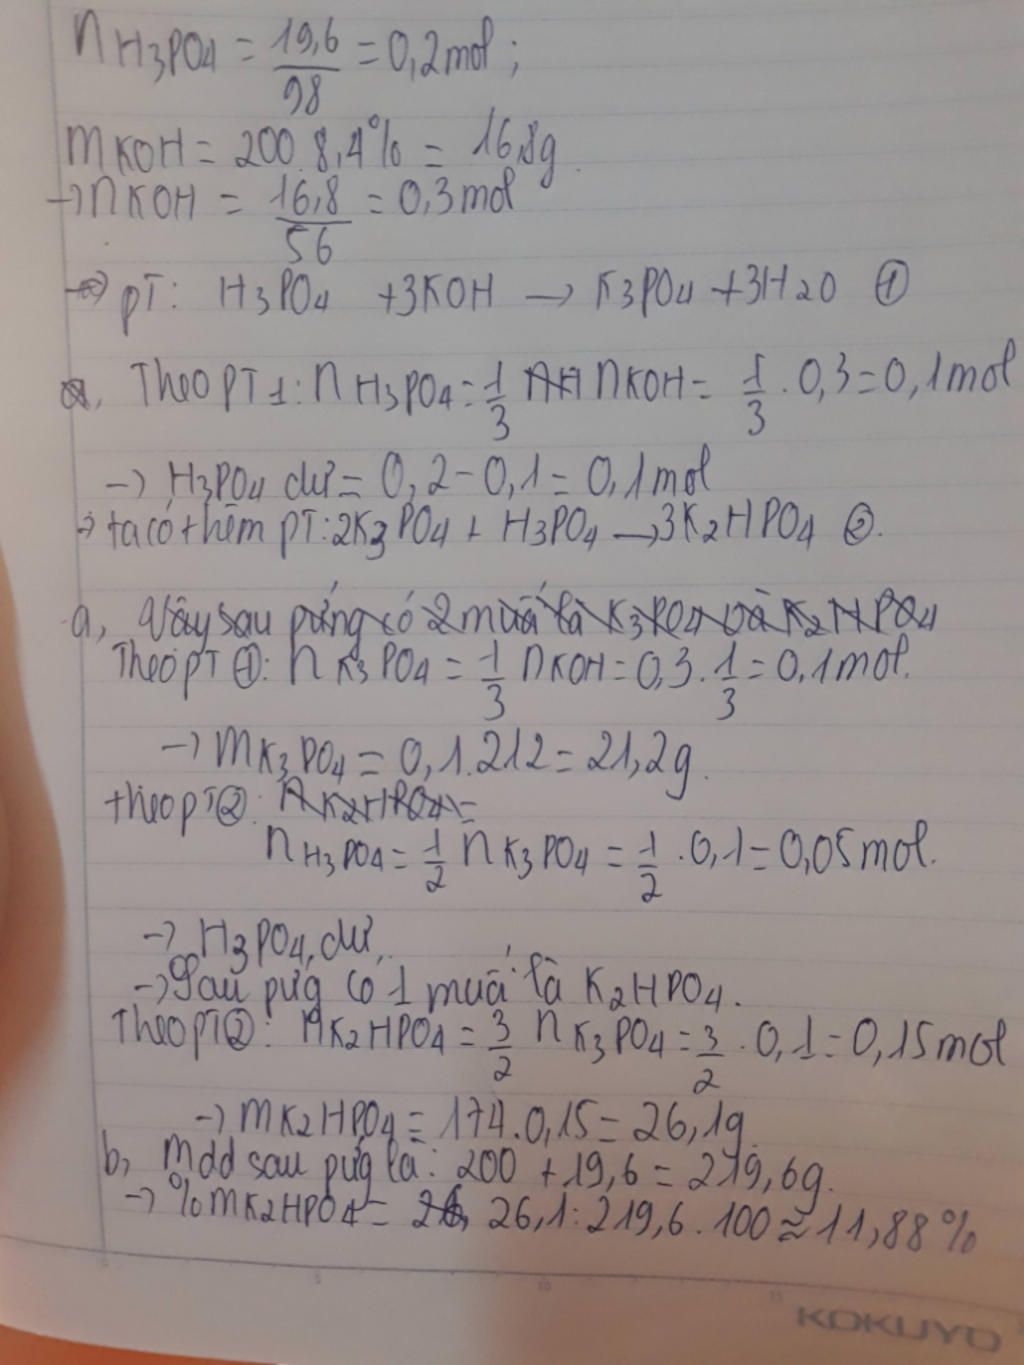 nH3PO4 = 19,6/98 = 0,2mol;
mKOH = 200.8,4% = 16,8g
→nKOH = 16,8/56 = 0,3mol
→ pT: H3PO4 +3KOH → K3PO4 +3H2O ①
a, Theo pT1: nH3PO4 = 1/3 nKOH = 1/3 . 0,3 = 0,1mol
→ H3PO4 dư = 0,2-0,1 = 0,1mol
→ ta có thêm pT: 2K3PO4 + H3PO4 → 3K2HPO4 ②.
a, Vậy sau pứng có 2 muối là K3PO4 và K2HPO4
Theo pT①: nK3PO4 = 1/3 nKOH = 0,3.1/3 = 0,1mol.
→ mK3PO4 = 0,1.212 = 21,2g.
theo pT②: nK2HPO4 =
nH3PO4 = 1/2 nK3PO4 = 1/2 .0,1 = 0,05mol.
→ H3PO4 dư.
→ Sau pứg có 1 muối là K2HPO4.
Theo pT②: nK2HPO4 = 3/2 nK3PO4 = 3/2 . 0,1 = 0,15mol
→ mK2HPO4 = 174.0,15 = 26,1g.
b, mdd sau pứg là: 200 +19,6 = 219,6g.
→ %mK2HPO4 = 26,1:219,6.100 ≈ 11,88%
5 10 15
KOKUYO